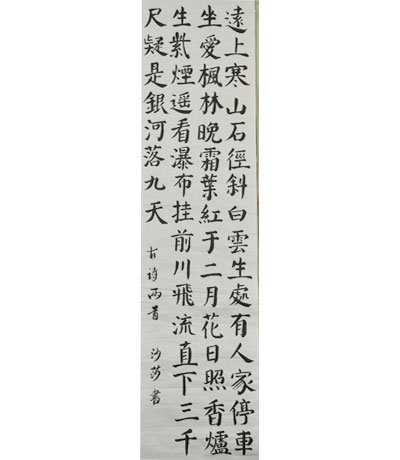 遠上寒山石徑斜白雲生處有人家停車
坐愛楓林晚霜葉紅于二月花日照香爐
生紫煙遥看瀑布挂前川飛流直下三千
尺疑是銀河落九天
古诗两首 沙莎書